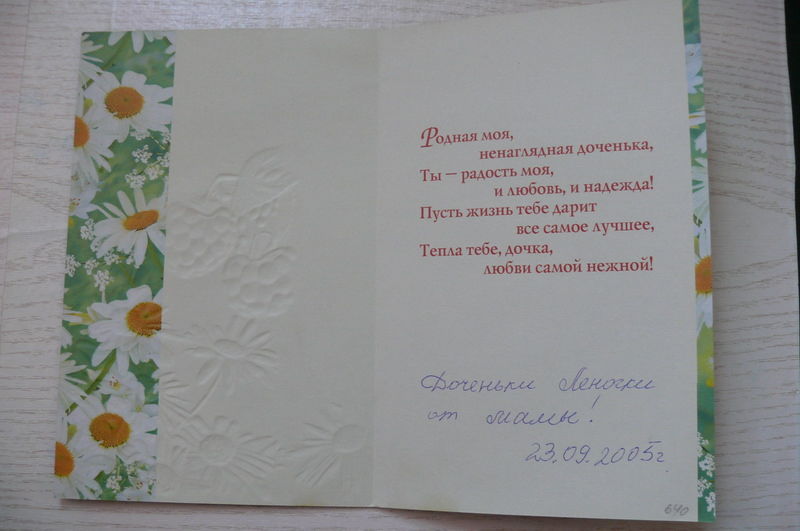 Родная моя,
ненаглядная доченька,
Ты — радость моя,
и любовь, и надежда!
Пусть жизнь тебе дарит
все самое лучшее,
Тепла тебе, дочка,
любви самой нежной!
Доченьки Леночки
от мамы!
23.09.2005г.
640